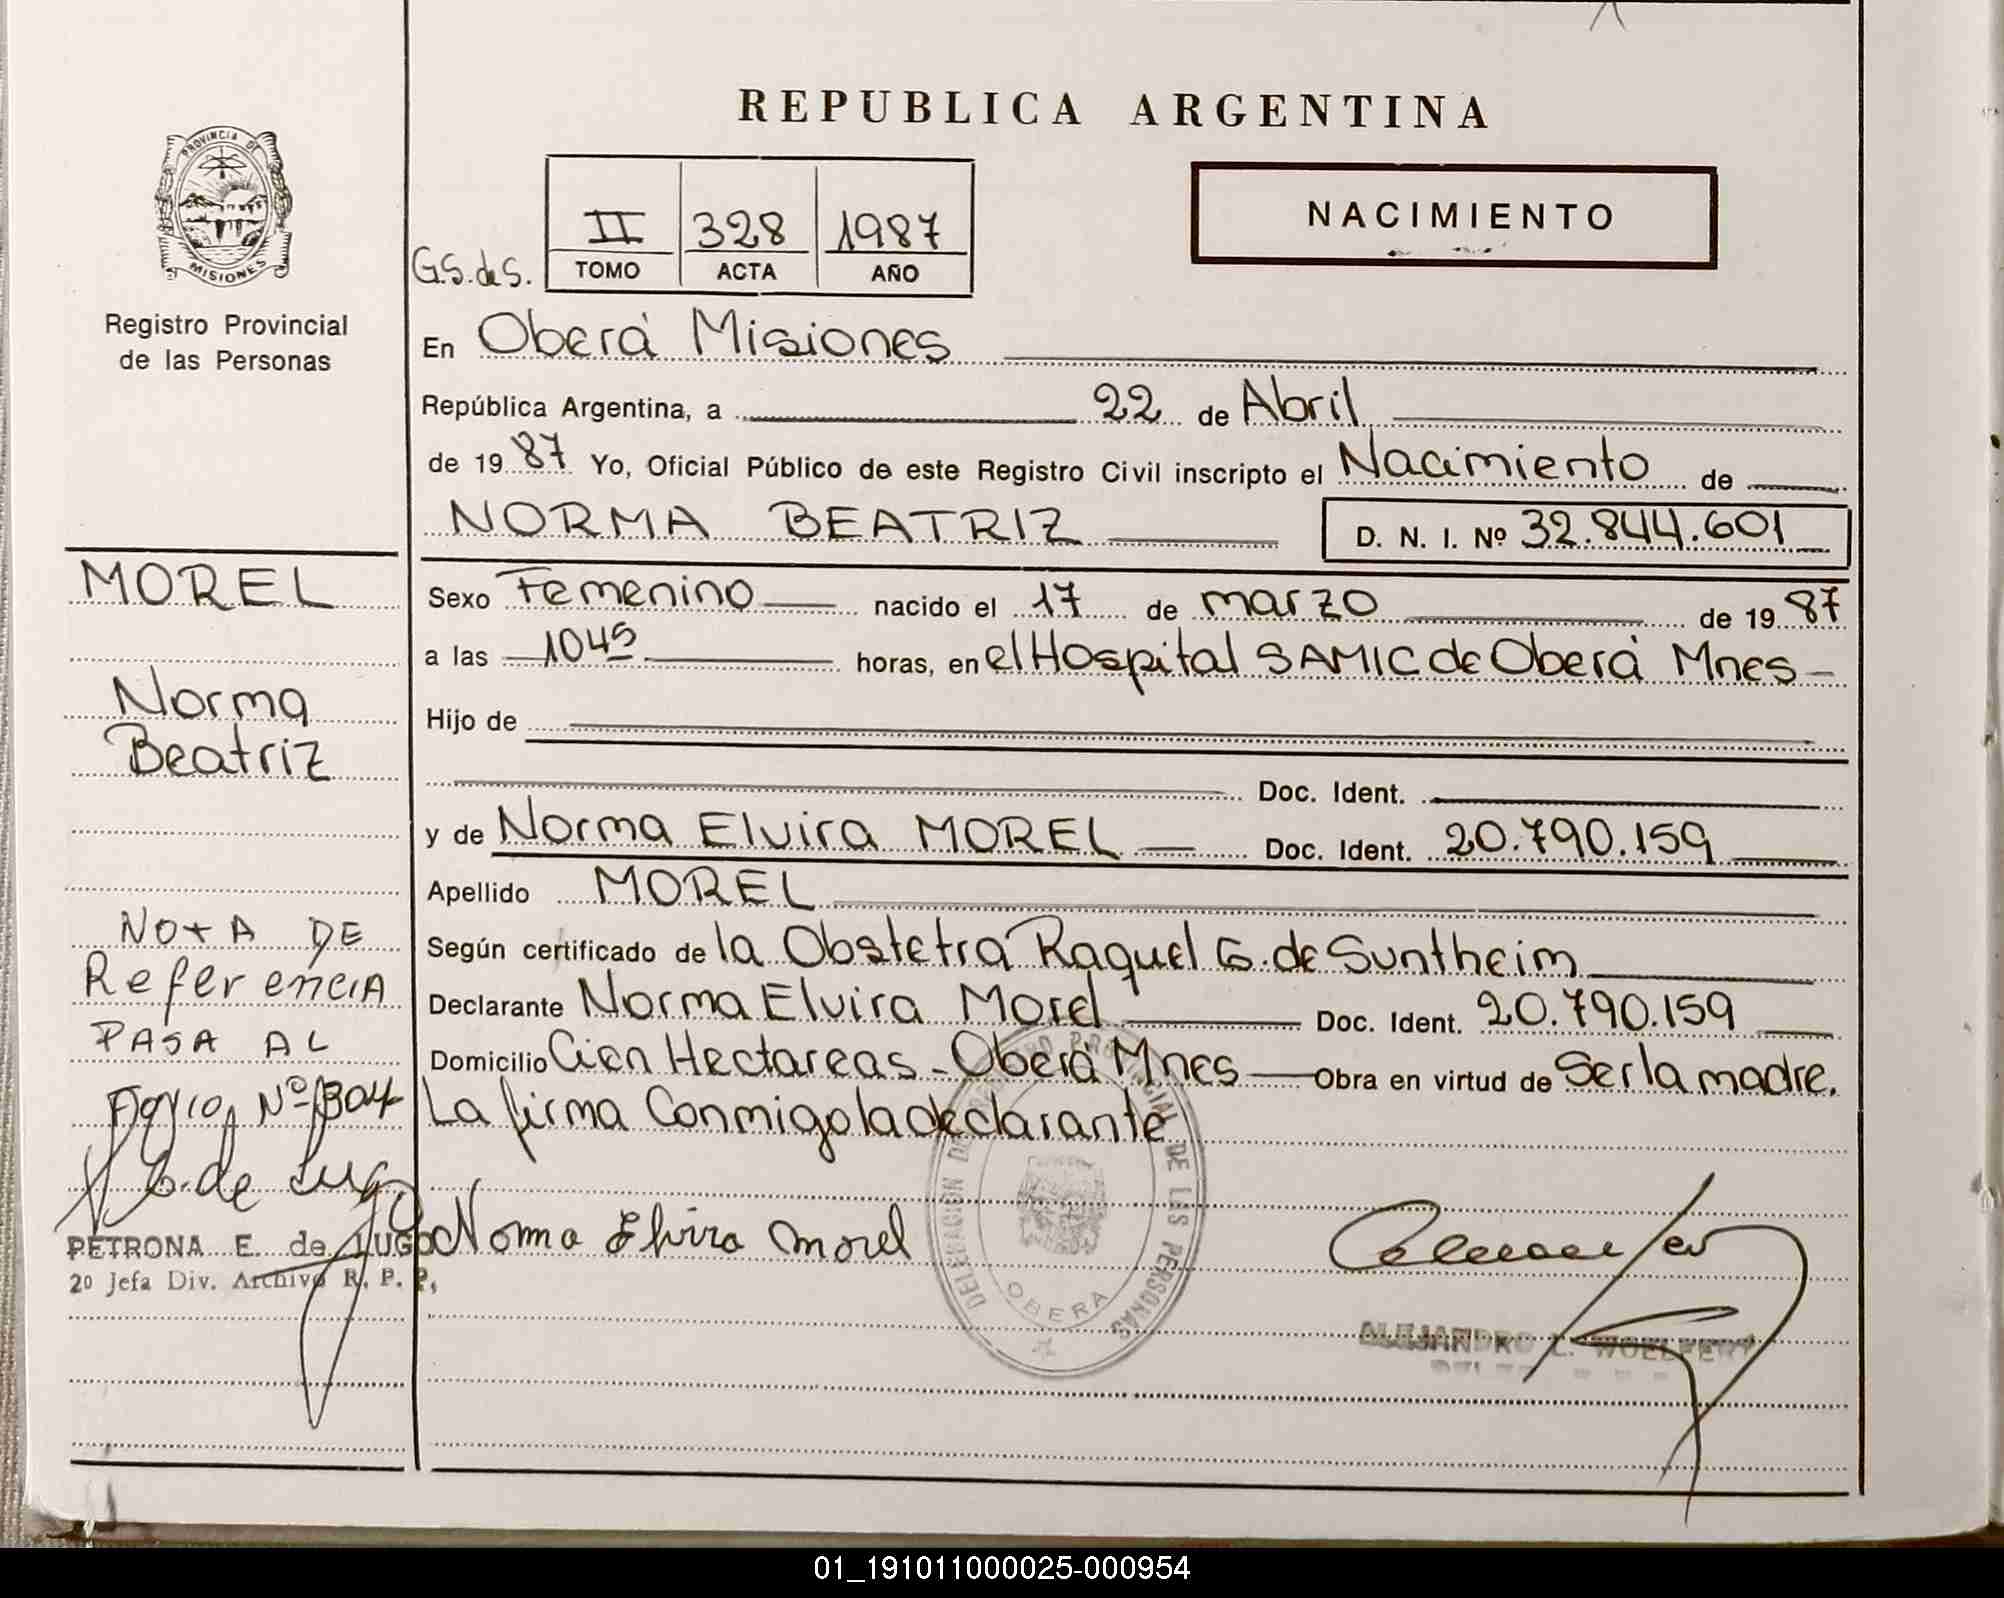 REPUBLICA ARGENTINA
PROVINCIA DE MISIONES
Registro Provincial
de las Personas
G.S. de S.
II 328 1987
TOMO ACTA AÑO
NACIMIENTO
En Oberá Misiones
República Argentina, a 22 de Abril
de 1987 Yo, Oficial Público de este Registro Civil inscripto el Nacimiento de
NORMA BEATRIZ D. N. I. Nº 32.844.601
Sexo Femenino nacido el 17 de marzo de 1987
a las 10 45 horas, en el Hospital SAMIC de Oberá Mnes-
Hijo de
Doc. Ident.
y de Norma Elvira MOREL Doc. Ident. 20.790.159
Apellido MOREL
Según certificado de la Obstetra Raquel G. de Suntheim
Declarante Norma Elvira Morel Doc. Ident. 20.790.159
Domicilio Cien Hectareas - Oberá Mnes Obra en virtud de Ser la madre.
La firma Conmigo la declarante
Norma Elvira Morel
DELEGACION DE REGISTRO PROVINCIAL DE LAS PERSONAS
OBERA
ALEJANDRO L. WOELFERT
MOREL
Norma
Beatriz
NOTA DE
Referencia
PASA AL
Folio Nº 304
E. de Lugo
PETRONA E. de LUGO
2º Jefa Div. Archivo R. P. P.
01_191011000025-000954